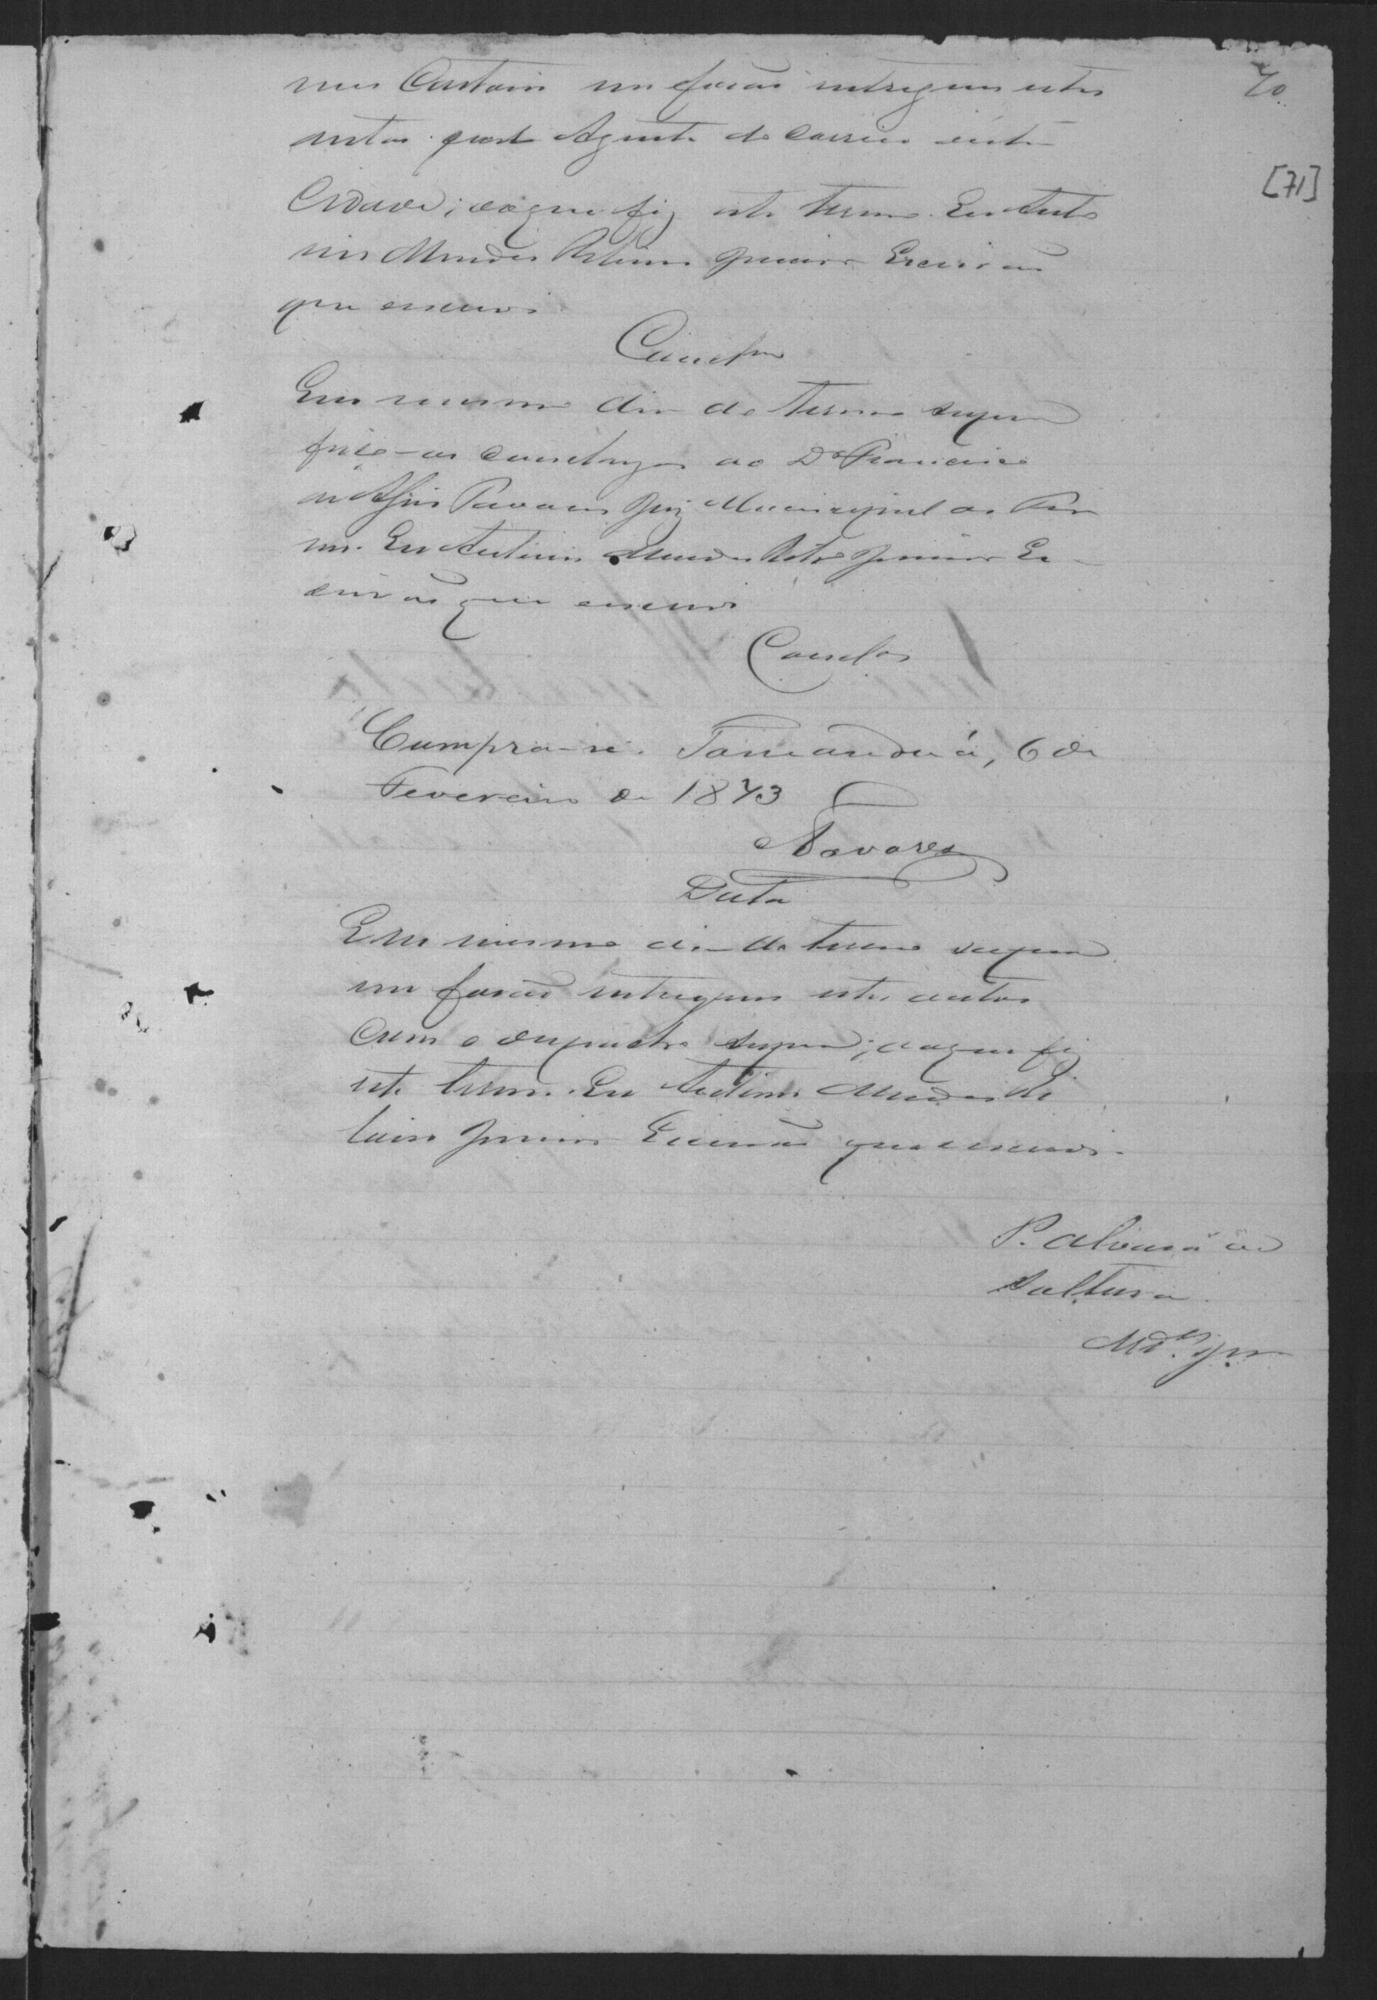 70
[71]
meu Cartorio me forão entregues estes
autos pelo Agente do Correio desta
Cidade; do que fiz este termo. Eu Anto
nio Mendes Ribeiro Junior Escrivão
que escrevi
Concl.m
Em mesmo dia do termo supra
faço-os conclusos ao Dr Francisco
de Assis Tavares Juiz Municipal do Ter
mo. Eu Antonio Mendes Ribro Junior Es-
crivão que escrevi
Conclos
Cumpra-se. Tamanduá, 6 de
Fevereiro de 1873
Tavares
Data
Em mesmo dia do termo supra
me forão entregues estes autos
com o despacho supra; do que fiz
este termo. Eu Antonio Mendes Ri
beiro Junior Escrivão que escrevi.
P. alvará de
soltura
Mdes Jor